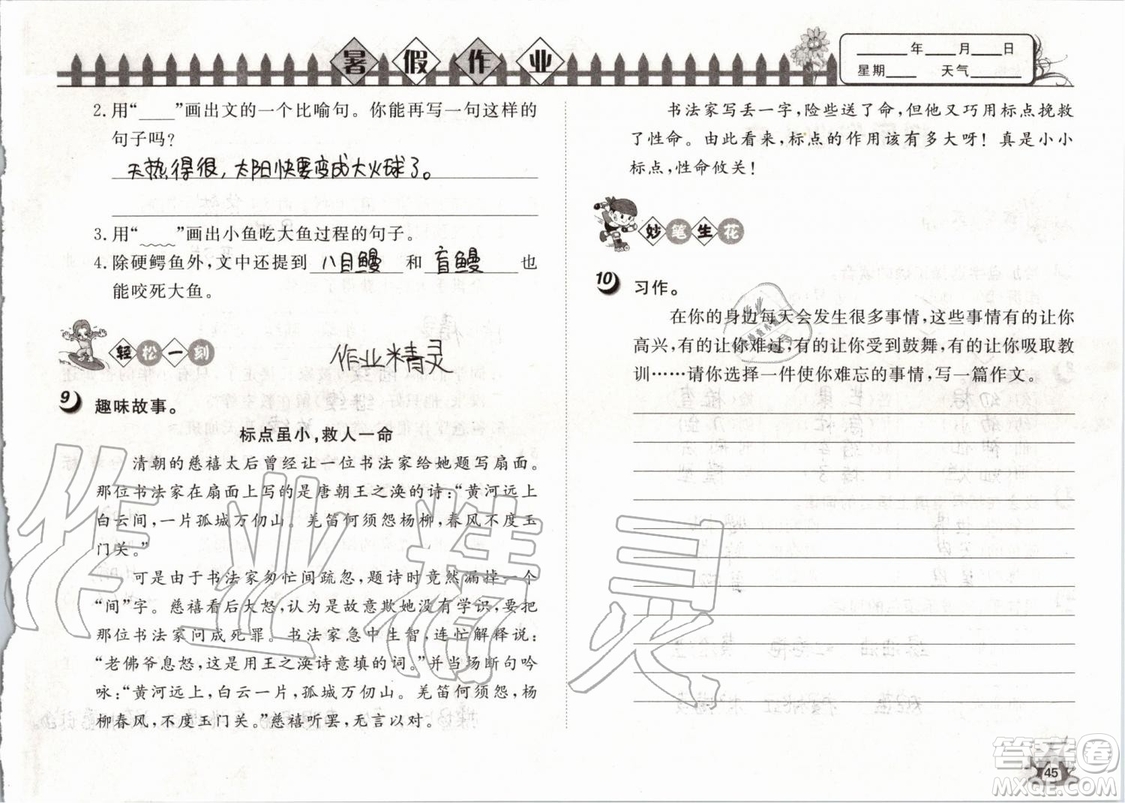 暑假作业
____年____月____日
星期____ 天气____
2.用“____”画出文的一个比喻句。你能再写一句这样的
句子吗?
天热得很,太阳快要变成大火球了。
3.用“____”画出小鱼吃大鱼过程的句子。
4.除硬鳄鱼外,文中还提到 八目鳗 和 盲鳗 也
能咬死大鱼。
轻松一刻
作业精灵
9 趣味故事。
标点虽小,救人一命
清朝的慈禧太后曾经让一位书法家给她题写扇面。
那位书法家在扇面上写的是唐朝王之涣的诗:“黄河远上
白云间,一片孤城万仞山。羌笛何须怨杨柳,春风不度玉
门关。”
可是由于书法家匆忙间疏忽,题诗时竟然漏掉了一个
“间”字。慈禧看后大怒,以为是故意欺她没有学识,要把
那位书法家问成死罪。书法家急中生智,连忙解释说:
“老佛爷息怒,这是用王之涣诗意填的词。”并当即断句吟
咏:“黄河远上,白云一片,孤城万仞山。羌笛何须怨,杨
柳春风,不度玉门关。”慈禧听罢,无言以对。
书法家写丢一字,险些送了命,但他又巧用标点挽救
了性命。由此看来,标点的作用该有多大呀!真是小小
标点,性命攸关!
妙笔生花
10 习作。
在你的身边每天会发生很多事情,这些事情有的让你
高兴,有的让你难过,有的让你受到鼓舞,有的让你吸取教
训……请你选择一件使你难忘的事情,写一篇作文。
作业精灵
45
答案圈
MXQE.COM